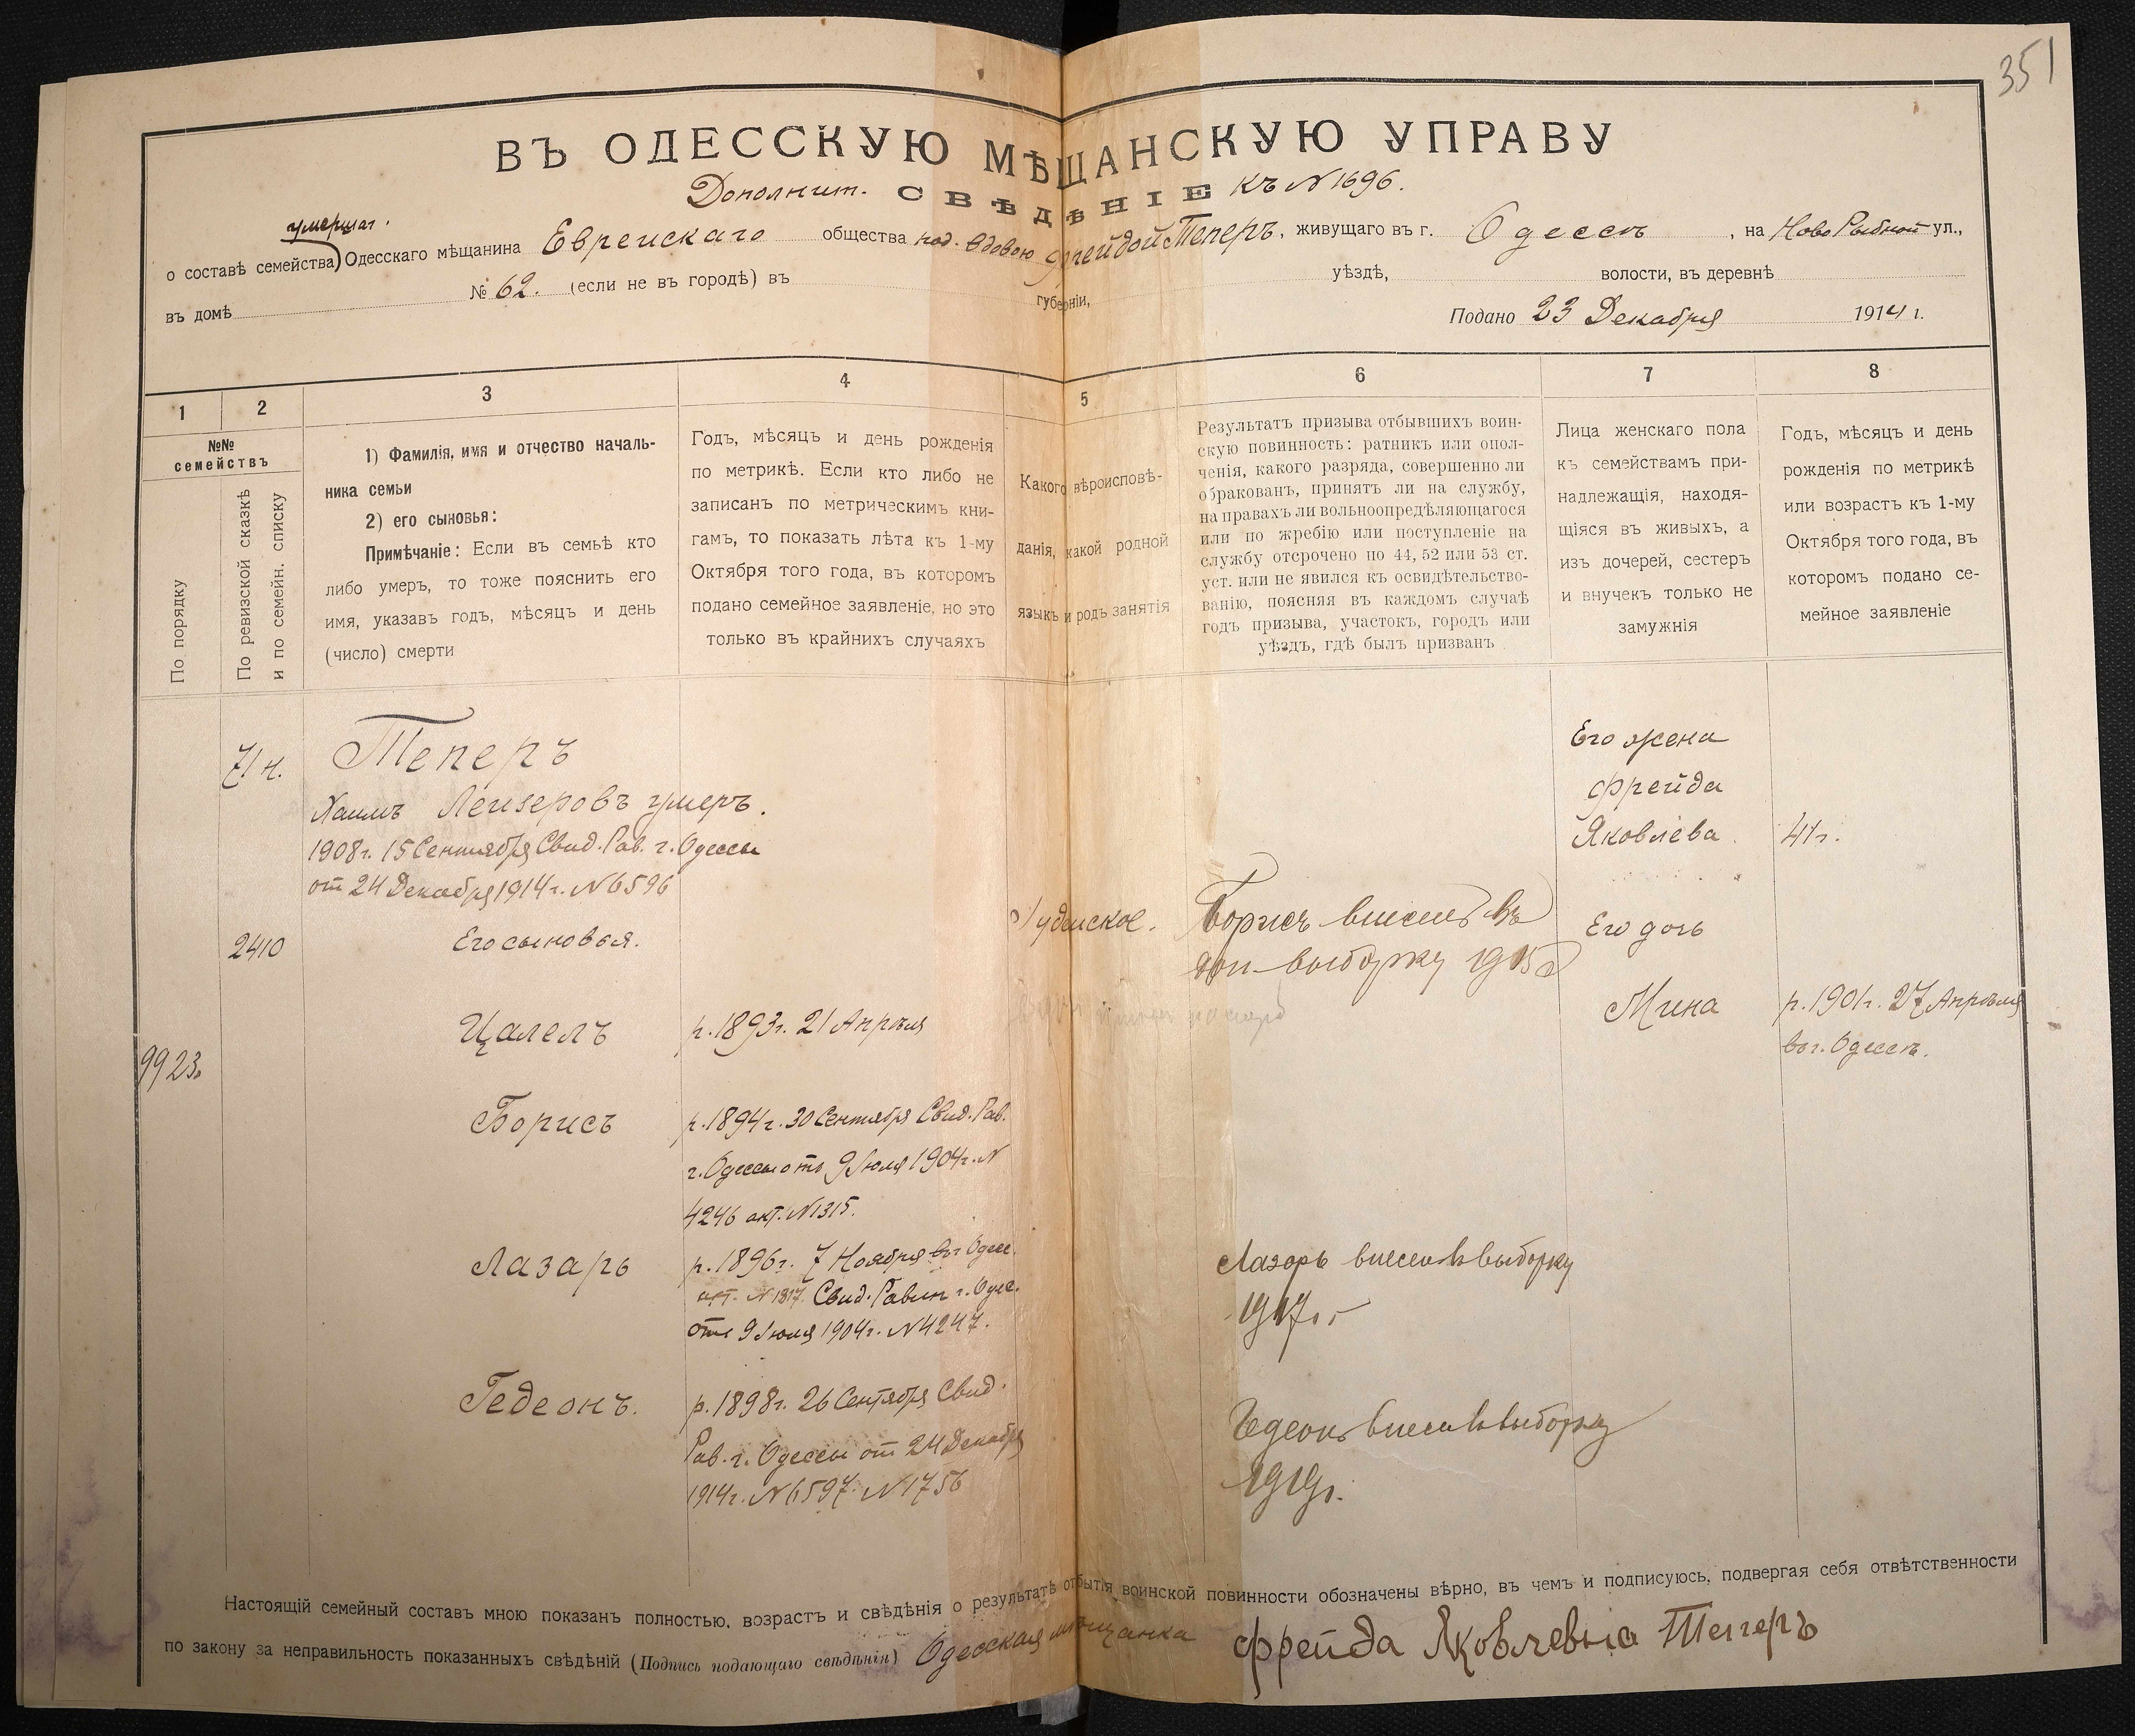 351
ВЪ ОДЕССКУЮ МѢЩАНСКУЮ УПРАВУ
Дополнит. СВѢДѢНІЕ къ № 1696.
умершаг.
о составѣ семейства) Одесскаго мѣщанина Еврейскаго общества под. вдовою Фрейдой Теперъ, живущаго въ г. Одессѣ, на Ново Рыбной ул.,
въ домѣ № 62. (если не въ городѣ) въ губерніи, уѣздѣ, волости, въ деревнѣ
Подано 23 Декабря 1914 г.
1 2 3 4 5 6 7 8
№№
семействъ
По порядку
По ревизской сказкѣ
и по семейн. списку
1) Фамилія, имя и отчество началь-
ника семьи
2) его сыновья:
Примѣчаніе: Если въ семьѣ кто
либо умеръ, то тоже пояснить его
имя, указавъ годъ, мѣсяцъ и день
(число) смерти
Годъ, мѣсяцъ и день рожденія
по метрикѣ. Если кто либо не
записанъ по метрическимъ кни-
гамъ, то показать лѣта къ 1-му
Октября того года, въ которомъ
подано семейное заявленіе, но это
только въ крайнихъ случаяхъ
Какого вѣроисповѣ-
данія, какой родной
языкъ и родъ занятія
Результатъ призыва отбывшихъ воин-
скую повинность: ратникъ или опол-
ченія, какого разряда, совершенно ли
обракованъ, принятъ ли на службу,
на правахъ ли вольноопредѣляющагося
или по жребію или поступленіе на
службу отсрочено по 44, 52 или 53 ст.
уст. или не явился къ освидѣтельство-
ванію, поясняя въ каждомъ случаѣ
годъ призыва, участокъ, городъ или
уѣздъ, гдѣ былъ призванъ
Лица женскаго пола
къ семействамъ при-
надлежащія, находя-
щіяся въ живыхъ, а
изъ дочерей, сестеръ
и внучекъ только не
замужнія
Годъ, мѣсяцъ и день
рожденія по метрикѣ
или возрастъ къ 1-му
Октября того года, въ
которомъ подано се-
мейное заявленіе
71 н.
Теперъ
Хаимъ Лейзеровъ умеръ.
1908 г. 15 Сентября Свид. Рав. г. Одессы
от 24 Декабря 1914 г. № 6596
Его жена
Фрейда
Яковлева 41 г.
2410
Его сыновья.
Іудейское.
Борисъ внесенъ въ
доп. выборку 1915
Его дочь
Мина
р. 1901 г. 27 Апрѣля
въ г. Одессѣ.
Цалелъ
р. 1893 г. 21 Апрѣля
9923.
Борисъ
р. 1894 г. 30 Сентября Свид. Рав.
г. Одессы отъ 9 Іюля 1904 г. №
4246 акт. № 1315.
Лазарь
р. 1896 г. 7 Ноября въ г Одесс.
акт. № 1817 Свид. Равин г. Одес.
отъ 9 Іюля 1904 г. № 4247.
Лазарь внесен въ выборку
1917 г.
Гедеонъ.
р. 1898 г. 26 Сентября Свид.
Рав. г. Одессы от 24 Декабря
1914 г. № 6597. № 1756
Гедеонъ внесен въ выборку
1919 г.
Настоящій семейный составъ мною показанъ полностью, возрастъ и свѣдѣнія о результатѣ отбытія воинской повинности обозначены вѣрно, въ чемъ и подписуюсь, подвергая себя отвѣтственности
по закону за неправильность показанныхъ свѣдѣній (Подпись подающаго свѣдѣнія) Одесская мѣщанка Фрейда Яковлевна Теперъ